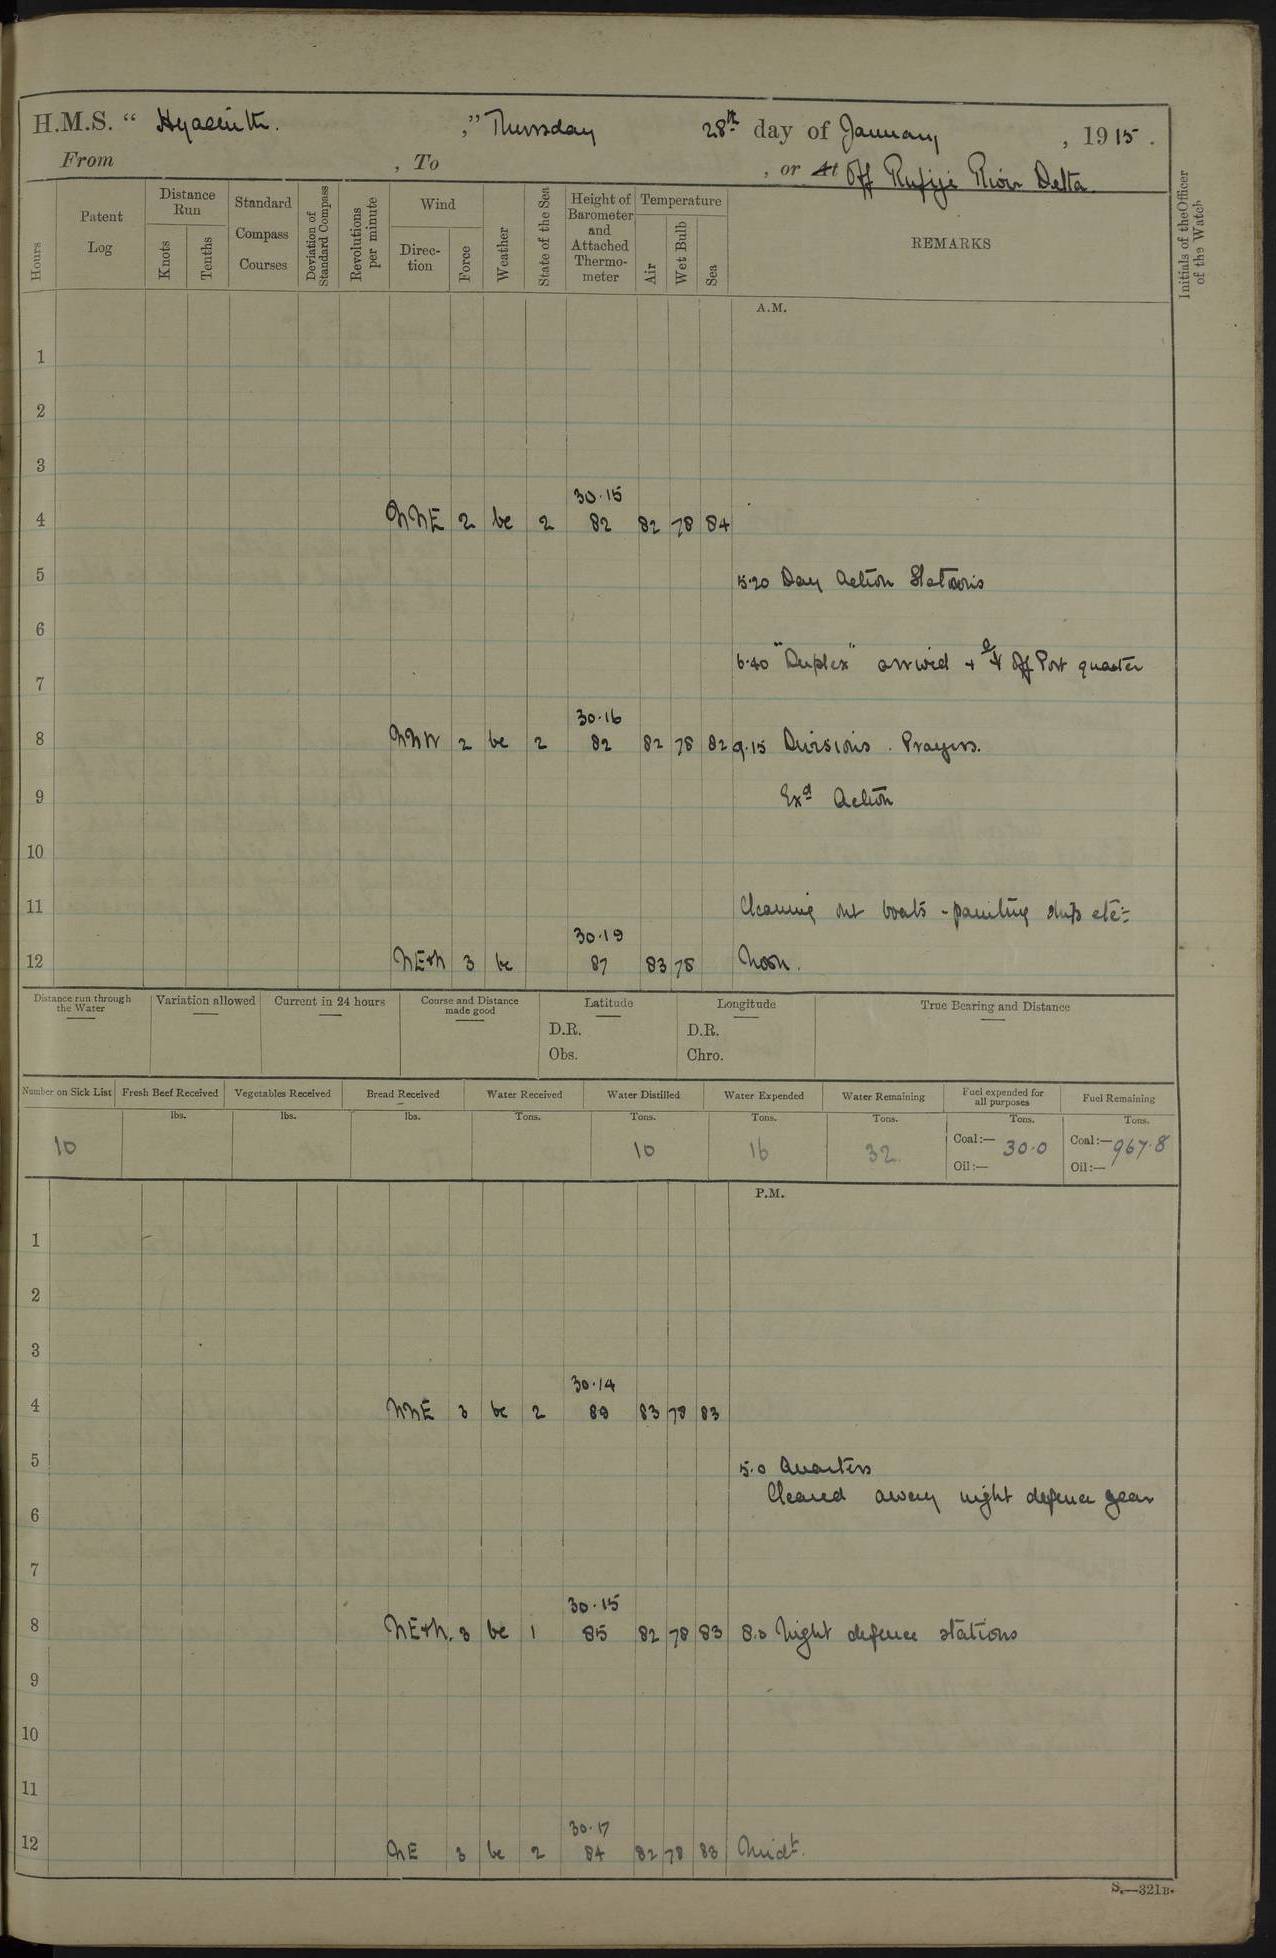 H.M.S. “ Hyacinth. ,” Thursday 28th day of January , 1915 .
From , To , or At Off Rufiji River Delta
Hours
Patent Log
Distance Run
Knots
Tenths
Standard Compass Courses
Deviation of Standard Compass
Revolutions per minute
Wind
Direc-tion
Force
Weather
State of the Sea
Height of Barometer and Attached Thermo-meter
Temperature
Air
Wet Bulb
Sea
REMARKS
Initials of the Officer of the Watch
A.M.
1
2
3
30.15
4 NNE 2 bc 2 82 82 78 84
5 5.20 Day Action Stations
6
6.40 "Duplex" arrived + Off Port quarter
7
30.16
8 NNW 2 bc 2 82 82 78 82 9.15 Divisions . Prayers.
9 Exd Action
10
11 Cleaning out boats - painting ship etc
30.19
12 NE+N 3 bc 87 83 78 Noon.
Distance run through the Water
Variation allowed
Current in 24 hours
Course and Distance made good
Latitude
D.R.
Obs.
Longitude
D.R.
Chro.
True Bearing and Distance
Number on Sick List
Fresh Beef Received
Vegetables Received
Bread Received
Water Received
Water Distilled
Water Expended
Water Remaining
Fuel expended for all purposes
Fuel Remaining
lbs. lbs. lbs. Tons. Tons. Tons. Tons. Tons. Tons.
10 10 16 32 Coal :— 30.0 Coal :— 967.8
Oil :— Oil :—
P.M.
1
2
3
30.14
4 NNE 3 bc 2 89 83 78 83
5 5.0 Quarters
Cleared away night defence gear
6
7
30.15
8 NE+N. 3 bc 1 85 82 78 83 8.0 Night defence stations
9
10
11
30.17
12 NE 3 bc 2 84 82 78 83 Midt.
S.—321B.